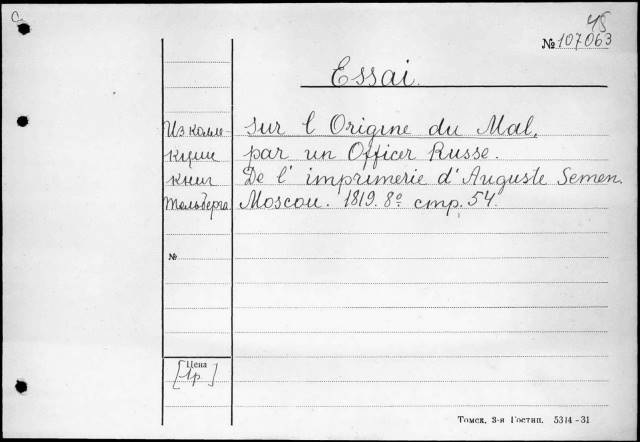 45
№ 107063
Essai.
Из колле- sur l Origine du Mal,
кции par un Officer Russe.
книг De l' imprimerie d'Auguste Semen.
Тольберга Moscou. 1819. 8º стр. 54.
№
Цена
[1р]
Томск, 3-я Гостип. 5314-31